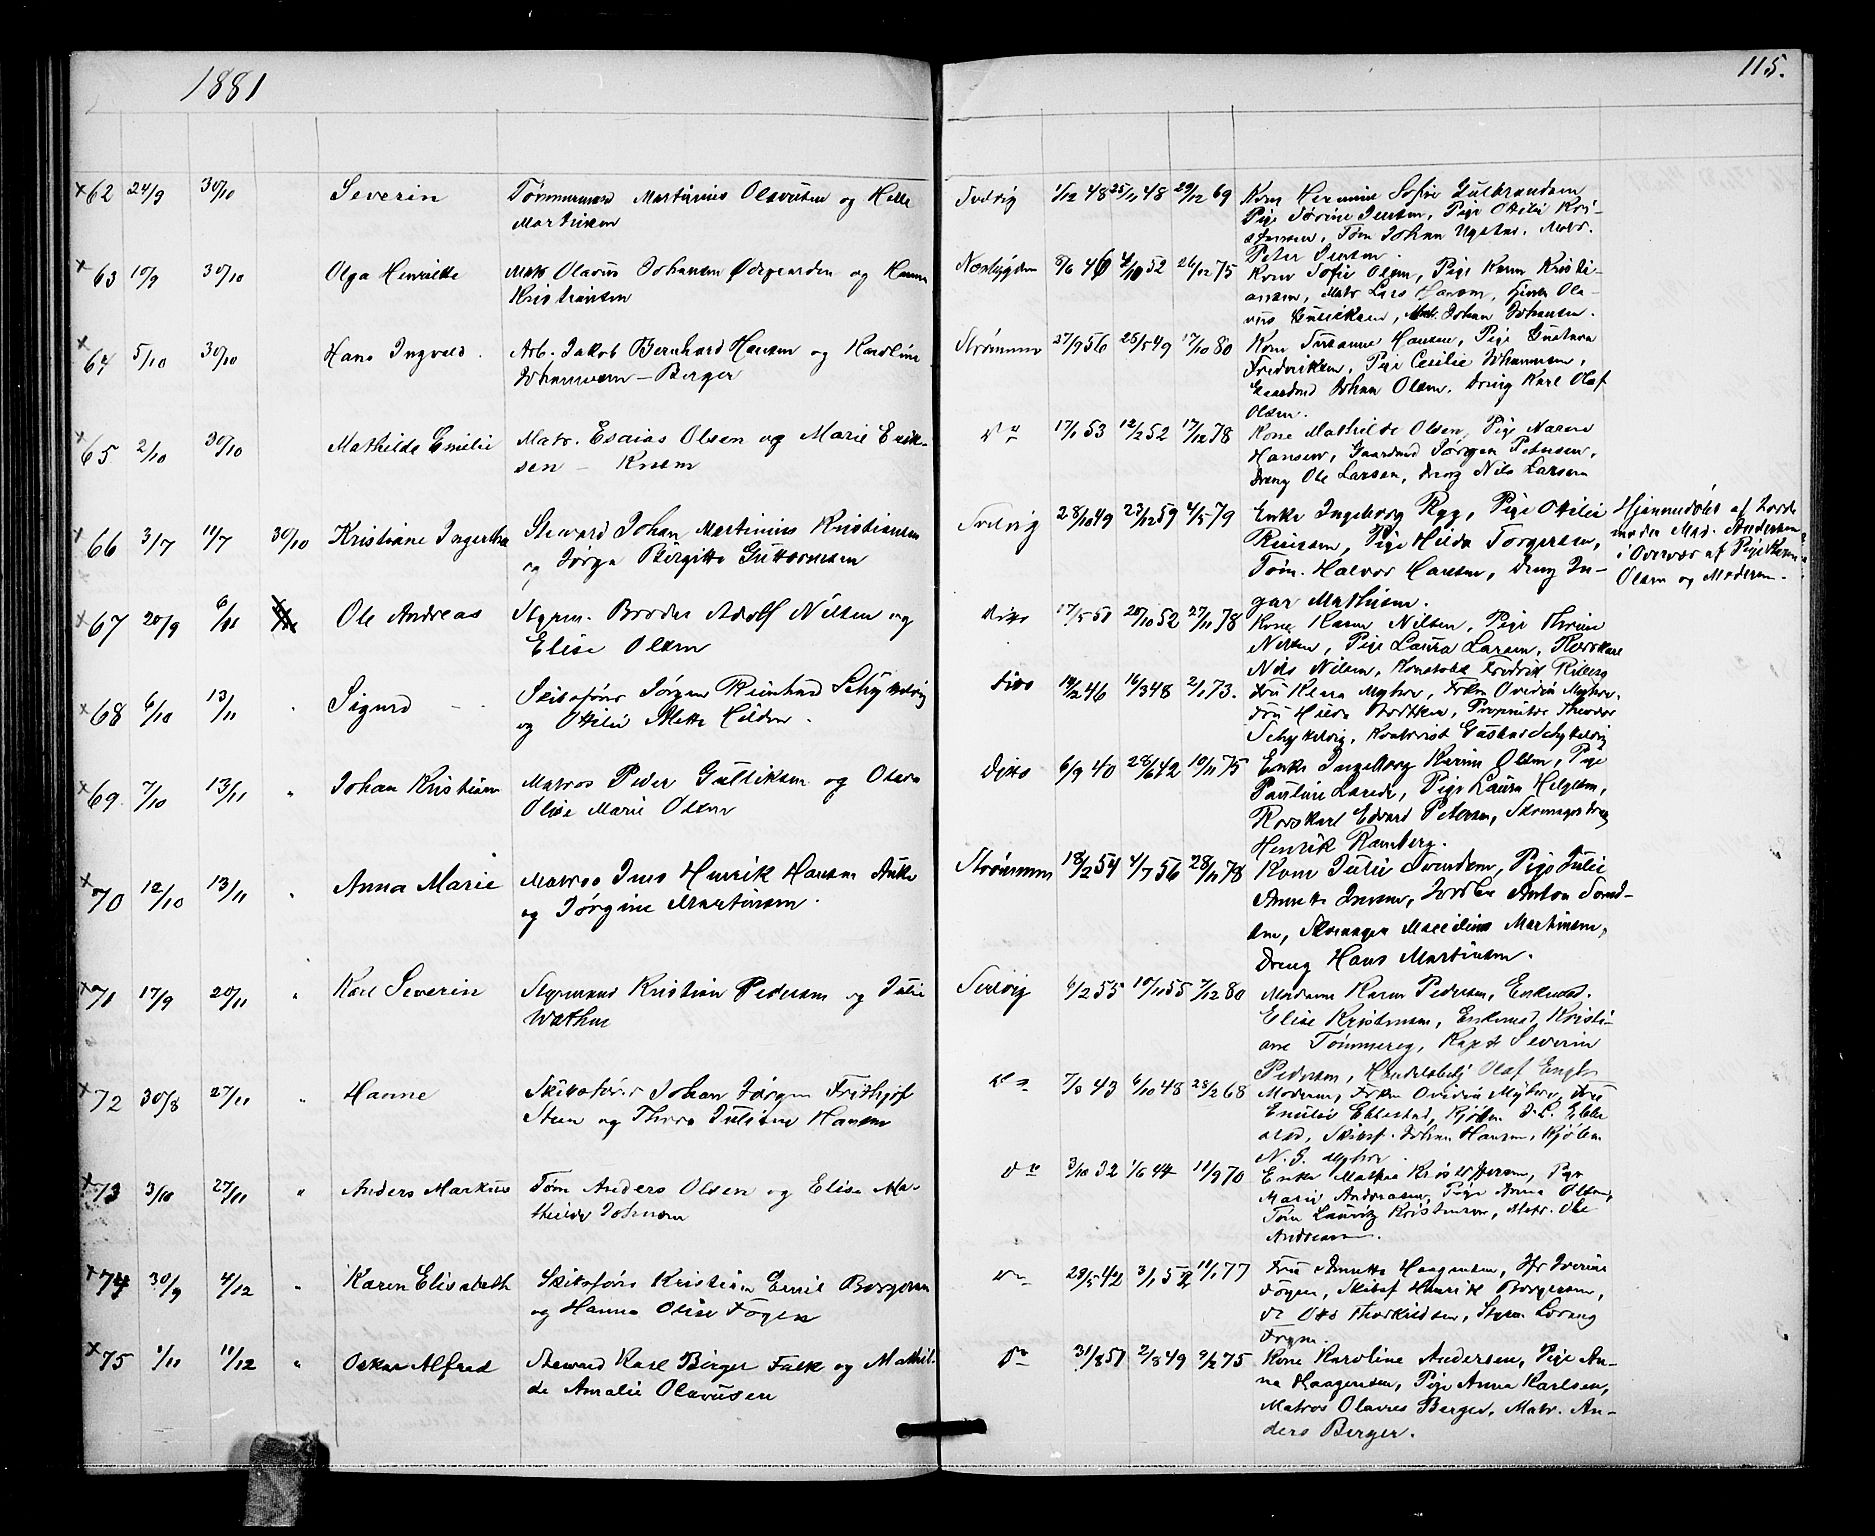 1881
115.
62 24/9 30/10 Severin Tømmermand Martinius Olavesen og Helle Svelvig 1/12 48 25/11 48 29/12 69 Kone Hermine Sofie Gulbrandsen
Martinsen Pige Sørine Jensen, Pige Otilie Kri-
stensen, Tøm Johan Matr.
Peter Jensen.
63 10/9 30/10 Olga Henrikke Matr Olavus Johansen Ødegaarden og Hanna Nesbygden 8/6 46 4/10 52 26/12 75 Kone Sofie Olsen, Pige Karen Kristi-
Kristiansen ansen, Matr Lars Hansen, Ola-
vus Gulliksen, Matr. Johan Johansen.
64 5/10 30/10 Hans Ingvald. Arb. Jakob Bernhard Hansen og Karoline Strømmen 27/9 56 25/5 49 17/10 80 Kone Susanne Hansen, Pige Gustava
Johannesen - Berger Fredriksen, Pige Cecilie Johannesen,
Gaardmd Johan Olsen, Dreng Karl Olaf
Olsen.
65 2/10 30/10 Mathilde Emilie Matr. Esaias Olsen og Marie Erik- Do 17/1 53 12/2 52 17/12 78 Kone Mathilde Olsen, Pige Maren
sen - Knem Hansen, Gaardmd Jørgen Petersen,
Dreng Ole Larsen, Dreng Nils Larsen
66 3/7 11/7 30/10 Kristiane Ingertha Steward Johan Martinius Kristiansen Svelvig 28/10 49 23/12 59 4/5 79 Enke Ingeborg Rygg, Pige Otilie Hjemmedøbt af Jorde
og Jørga Birgitte Guttormsen Pige Hilda Torgersen, moder Mad. Andersen
Tøm. Halvor Hansen, Dreng In- i Overvær af Pige Karen
gar Mathisen. Olsen og Moderen.
67 20/9 6/11 Ole Andreas Styrm. Broder Adolf Nilsen og Ditto 17/5 51 20/10 52 27/11 78 Kone Karen Nilsen, Pige Thrine
Elise Olsen Nilsen, Pige Laura Larsen, Rorskarl
Nils Nilsen, Konstabel Fredrik Riberg
68 6/10 13/11 Sigurd Skibsfører Jørgen Reinhard Schykelvig Ditto 14/2 46 14/3 48 2/1 73. Fru Klara Myhre, Frkn Ovidia Myhre,
og Otilie Aletta Hilden. Fru Hilda, Proprietær Theodor
Schykelvig, Kontorist Gustav Schykelvig
69. 7/10 13/11 " Johan Kristian Matros Peder Gulliksen og Olava Ditto 6/9 40 28/6 42 10/11 75 Enke Ingeborg Karine Olsen, Pige
Olise Marie Olsen Pauline Larsen, Pige Laura Helgesen,
Rorskarl Edvard Petersen, Skomagerdreng
Henrik Ramberg.
70 12/10 13/11 " Anna Marie Matros Jens Henrik Hansen Anke Strømmen 18/2 54 4/7 56 28/11 78 Kone Julie Svendsen, Pige Julie
og Jørgine Martinsen. Annette Jensen, Anton Svend-
sen, Skomager Marcilius Martinsen,
Dreng Hans Martinsen.
71 17/9 20/11 " Karl Severin Styrmand Kristian Pedersen og Julie Svelvig 6/2 55 10/11 55 7/12 80 Madame Karen Pedersen, Enkemad.
Wathne Elise Kristensen, Enkemad. Kristi-
ane Tømmereg, Kapt Severin
Pedersen, Handelsbetj Olaf Engh
72 30/8 27/11 " Hanne Skibsfører Johan Jørgen Frithjof Do 7/3 43 6/10 48 28/2 68 Moderen, Frkn Ovidia Myhre, Fru
Steen og Thora Julistine Hansen Emilie Ebbestad, Kjøbm. J. L. Ebbe
stad, Skibsf. Johan Hansen, Kjøbm
N. G. Myhre.
73 3/10 27/11 " Anders Markus Tøm Anders Olsen og Elise Ma- Do 3/10 32 1/6 44 11/9 70 Enke Mathea Kristoffersen, Pige
thilde Johnsen Marie Andreasen, Pige Anna Olsen,
Tøm Lauritz Kristensen, Matr. Ole
Andreasen.
74 30/9 4/12 " Karen Elisabeth Skibsfører Kristian Emil Borgersen Do 29/5 42 3/1 52 11/1 77 Fru Annette Haagensen, Jfr Iverine
og Hanna Olise Fogen Fogen, Skibsf Henrik Borgersen,
Do Otto Thorkildsen, Styrm Lorang
Fogen.
75 1/11 11/12 " Oskar Alfred Steward Karl Birger Falk og Mathil- Do 31/8 51 2/8 49 9/2 75 Kone Karoline Andersen, Pige An-
de Amalie Olavesen na Haagensen, Pige Anna Karlsen,
Matros Olaves Berger, Matr. An-
ders Berger.